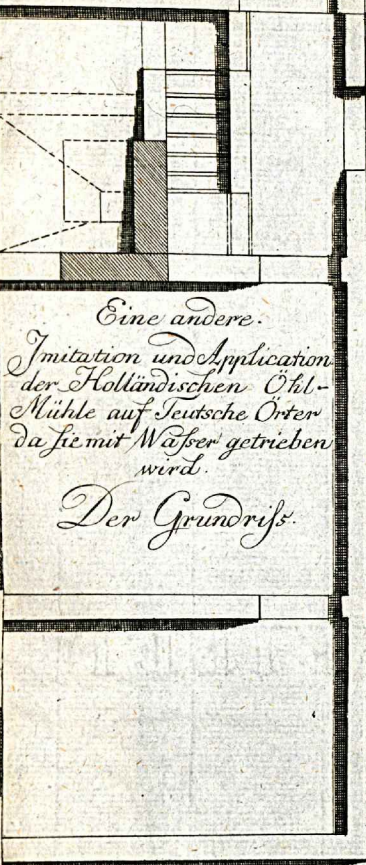 Eine andere.
Imitation und Application
der Holländischen Öhl-
Mühle auf Teutsche Örter
da sie mit Waßer getrieben
wird.
Der Grundriß.